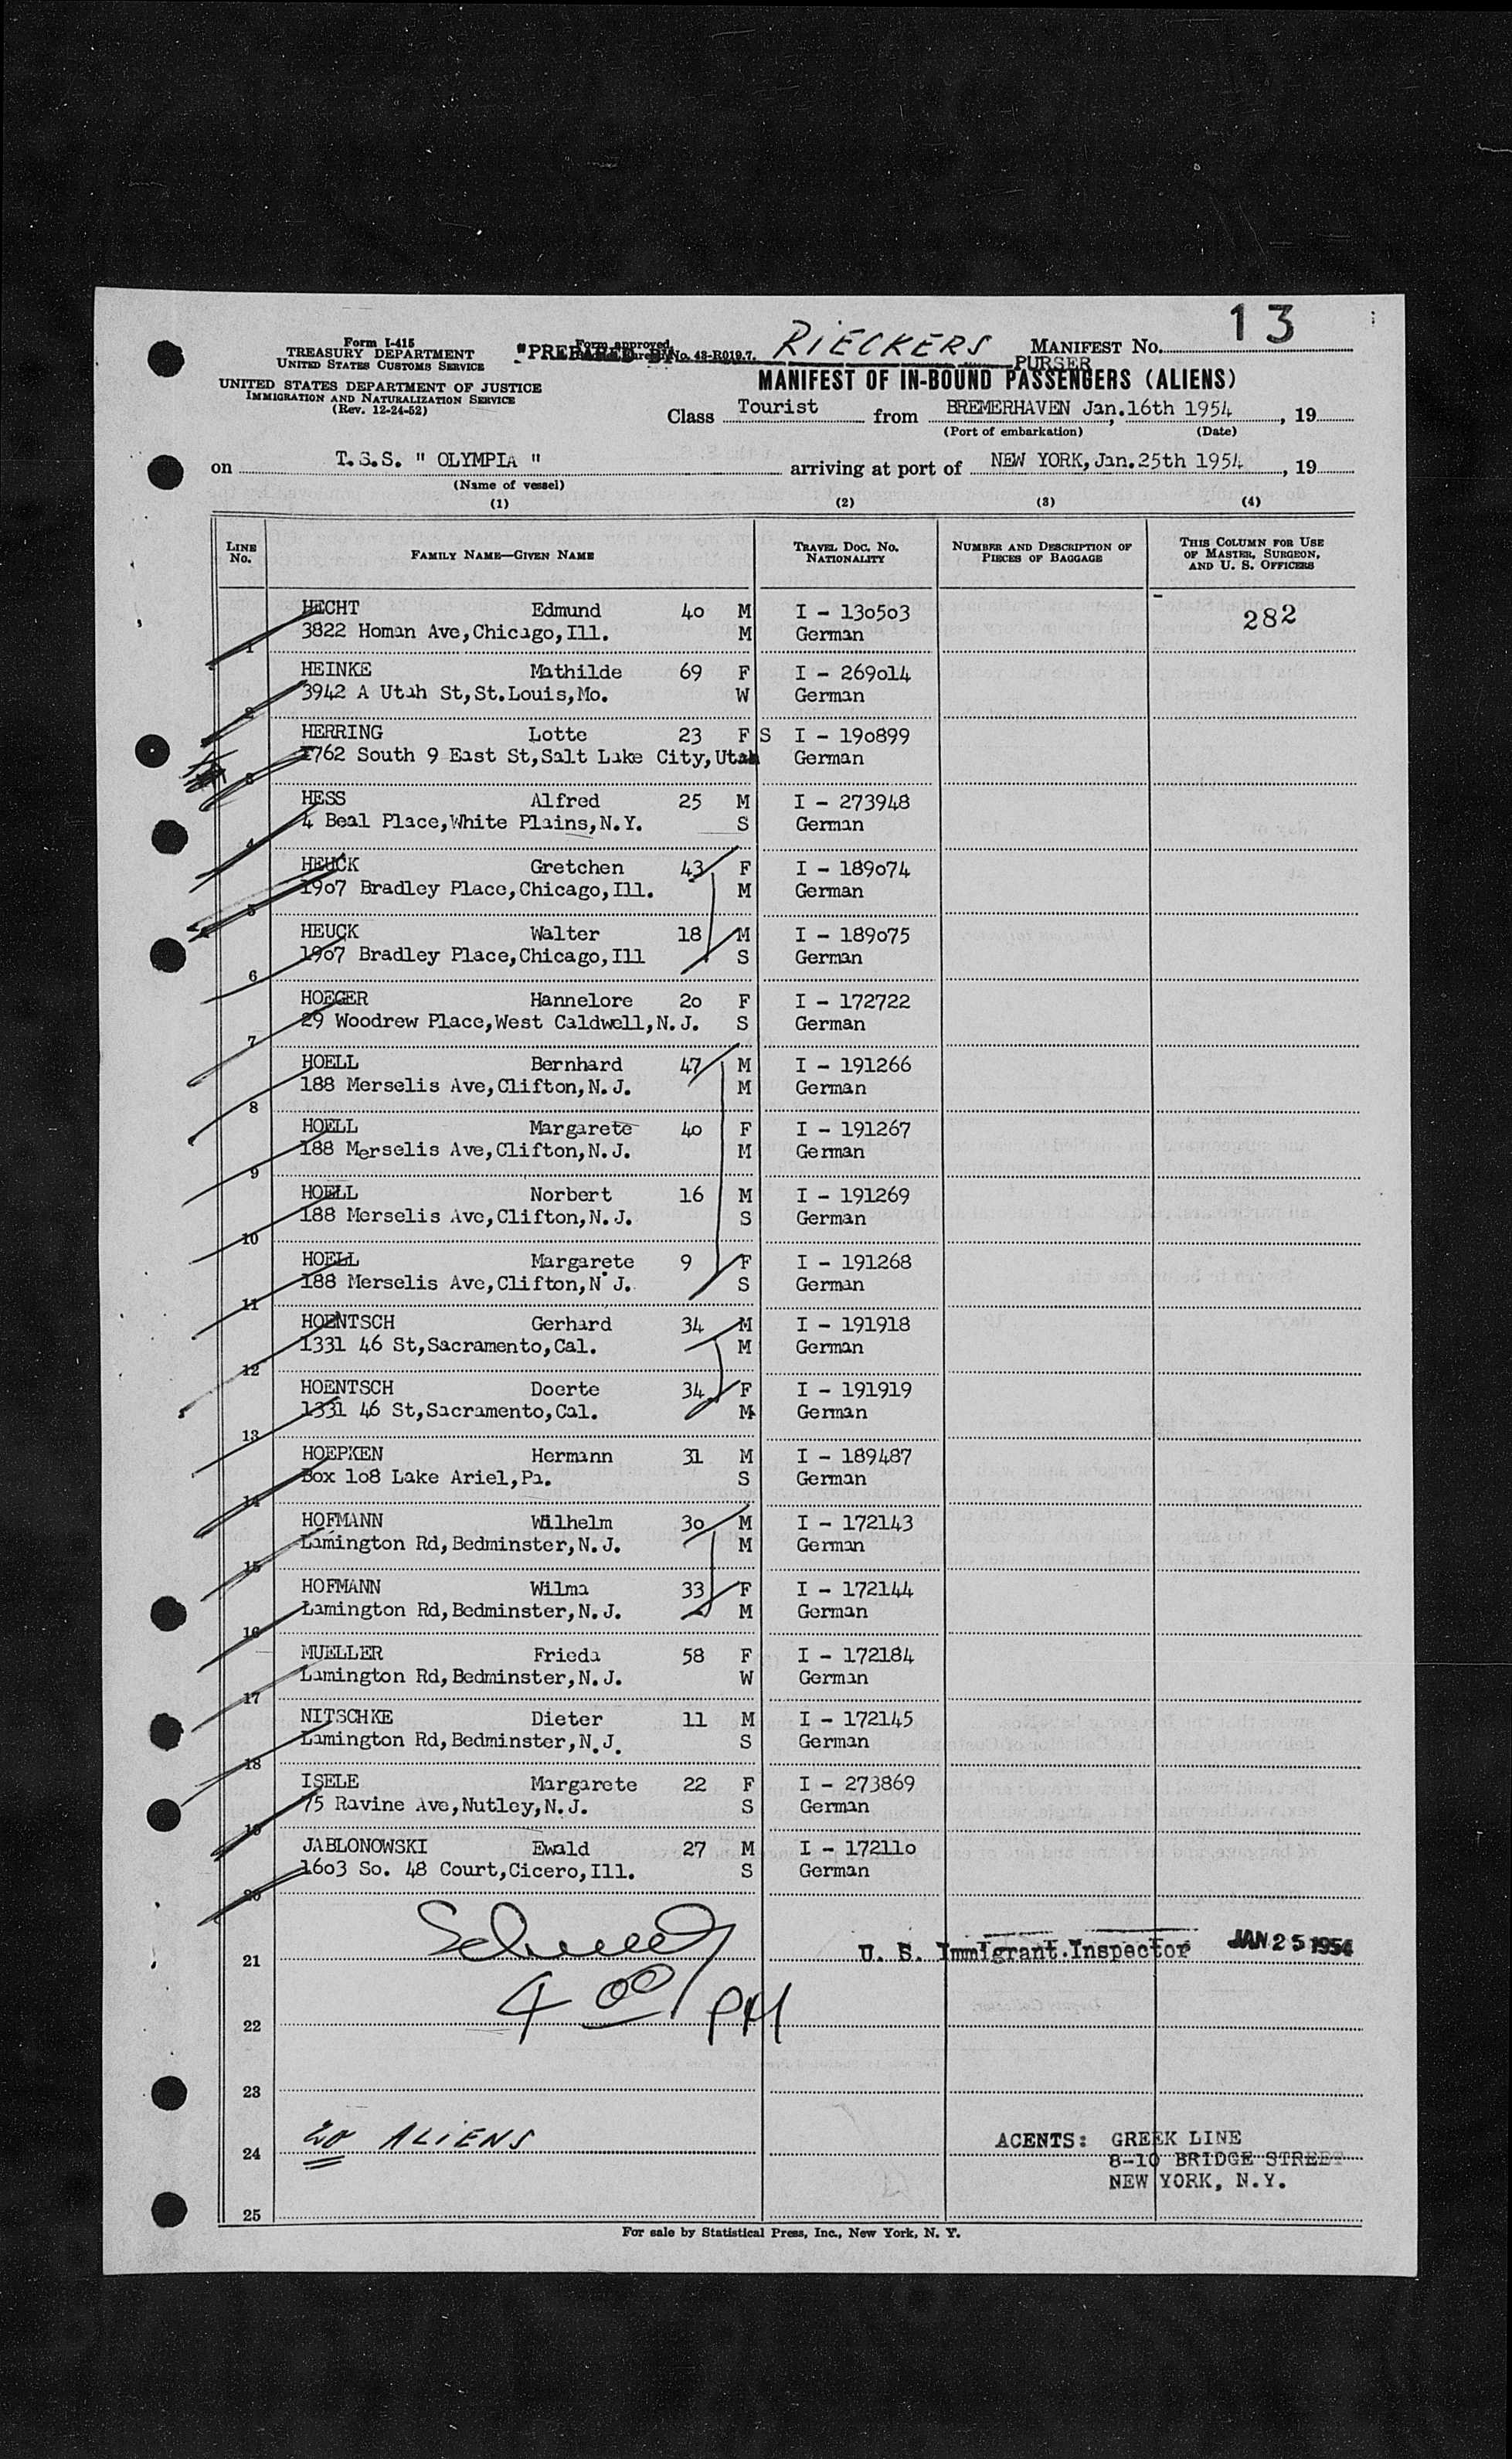 13
Form I-415
TREASURY DEPARTMENT
UNITED STATES CUSTOMS SERVICE
UNITED STATES DEPARTMENT OF JUSTICE
IMMIGRATION AND NATURALIZATION SERVICE
(Rev. 12-24-52)
Form approved
"PREPARED BY No. 43-R019.7. RIECKERS
PURSER
MANIFEST NO.
MANIFEST OF IN-BOUND PASSENGERS (ALIENS)
Class Tourist from BREMERHAVEN Jan.16th 1954, 19
(Port of embarkation) (Date)
on T.S.S. " OLYMPIA " arriving at port of NEW YORK, Jan.25th 1954, 19
(Name of vessel)
(1) (2) (3) (4)
LINE NO. FAMILY NAME—GIVEN NAME TRAVEL DOC. NO. NATIONALITY NUMBER AND DESCRIPTION OF PIECES OF BAGGAGE THIS COLUMN FOR USE OF MASTER, SURGEON, AND U. S. OFFICERS
HECHT Edmund 40 M I - 130503 282
1 3822 Homan Ave,Chicago,Ill. M German
HEINKE Mathilde 69 F I - 269014
2 3942 A Utah St,St.Louis,Mo. W German
HERRING Lotte 23 F S I - 190899
3 1762 South 9 East St,Salt Lake City,Utah German
HESS Alfred 25 M I - 273948
4 4 Beal Place,White Plains,N.Y. S German
HEUCK Gretchen 43 F I - 189074
5 1907 Bradley Place,Chicago,Ill. M German
HEUCK Walter 18 M I - 189075
6 1907 Bradley Place,Chicago,Ill S German
HOEGER Hannelore 20 F I - 172722
7 29 Woodrew Place,West Caldwell,N.J. S German
HOELL Bernhard 47 M I - 191266
8 188 Merselis Ave,Clifton,N.J. M German
HOELL Margarete 40 F I - 191267
9 188 Merselis Ave,Clifton,N.J. M German
HOELL Norbert 16 M I - 191269
10 188 Merselis Ave,Clifton,N.J. S German
HOELL Margarete 9 F I - 191268
11 188 Merselis Ave,Clifton,N.J. S German
HOENTSCH Gerhard 34 M I - 191918
12 1331 46 St,Sacramento,Cal. M German
HOENTSCH Doerte 34 F I - 191919
13 1331 46 St,Sacramento,Cal. M German
HOEPKEN Hermann 31 M I - 189487
14 Box 108 Lake Ariel,Pa. S German
HOFMANN Wilhelm 30 M I - 172143
15 Lamington Rd,Bedminster,N.J. M German
HOFMANN Wilma 33 F I - 172144
16 Lamington Rd,Bedminster,N.J. M German
MUELLER Frieda 58 F I - 172184
17 Lamington Rd,Bedminster,N.J. W German
NITSCHKE Dieter 11 M I - 172145
18 Lamington Rd,Bedminster,N.J. S German
ISELE Margarete 22 F I - 273869
19 75 Ravine Ave,Nutley,N.J. S German
JABLONOWSKI Ewald 27 M I - 172110
20 1603 So. 48 Court,Cicero,Ill. S German
21 U. S. Immigrant Inspector JAN 25 1954
4 00 PM
22
23
24 20 ALIENS
AGENTS: GREEK LINE
8-10 BRIDGE STREET
NEW YORK, N.Y.
25
For sale by Statistical Press, Inc., New York, N. Y.